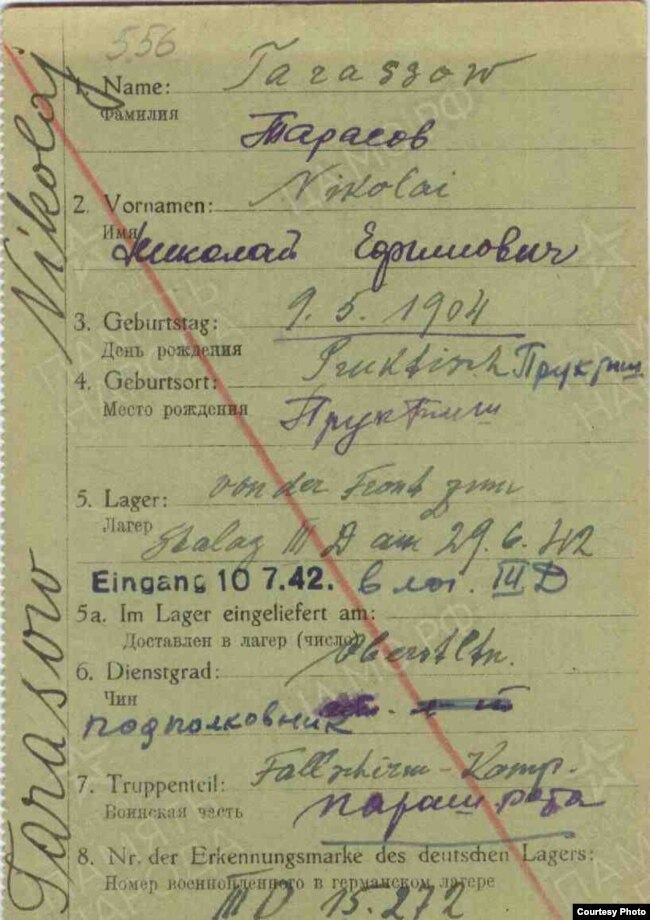 5.56
Tarasow Nikolaj
1. Name: Taraszow
Фамилия
Тарасов
2. Vornamen: Nikolai
Имя
Николай Ефимович
3. Geburtstag: 9. 5. 1904
День рождения
Пруктиш
4. Geburtsort:
Место рождения
Пруктиш
5. Lager: von der Front zum
Лагер
Stalag III D am 29.6.42
Eingang 10 7.42. в лаг. III D
5a. Im Lager eingeliefert am:
Доставлен в лагер (число)
6. Dienstgrad: Oberstltn.
Чин
подполковник
7. Truppenteil: Fallschirm-Komp.
Воинская часть
параш. рота
8. Nr. der Erkennungsmarke des deutschen Lagers:
Номер военнопленного в германском лагере
III D 15.272
Courtesy Photo